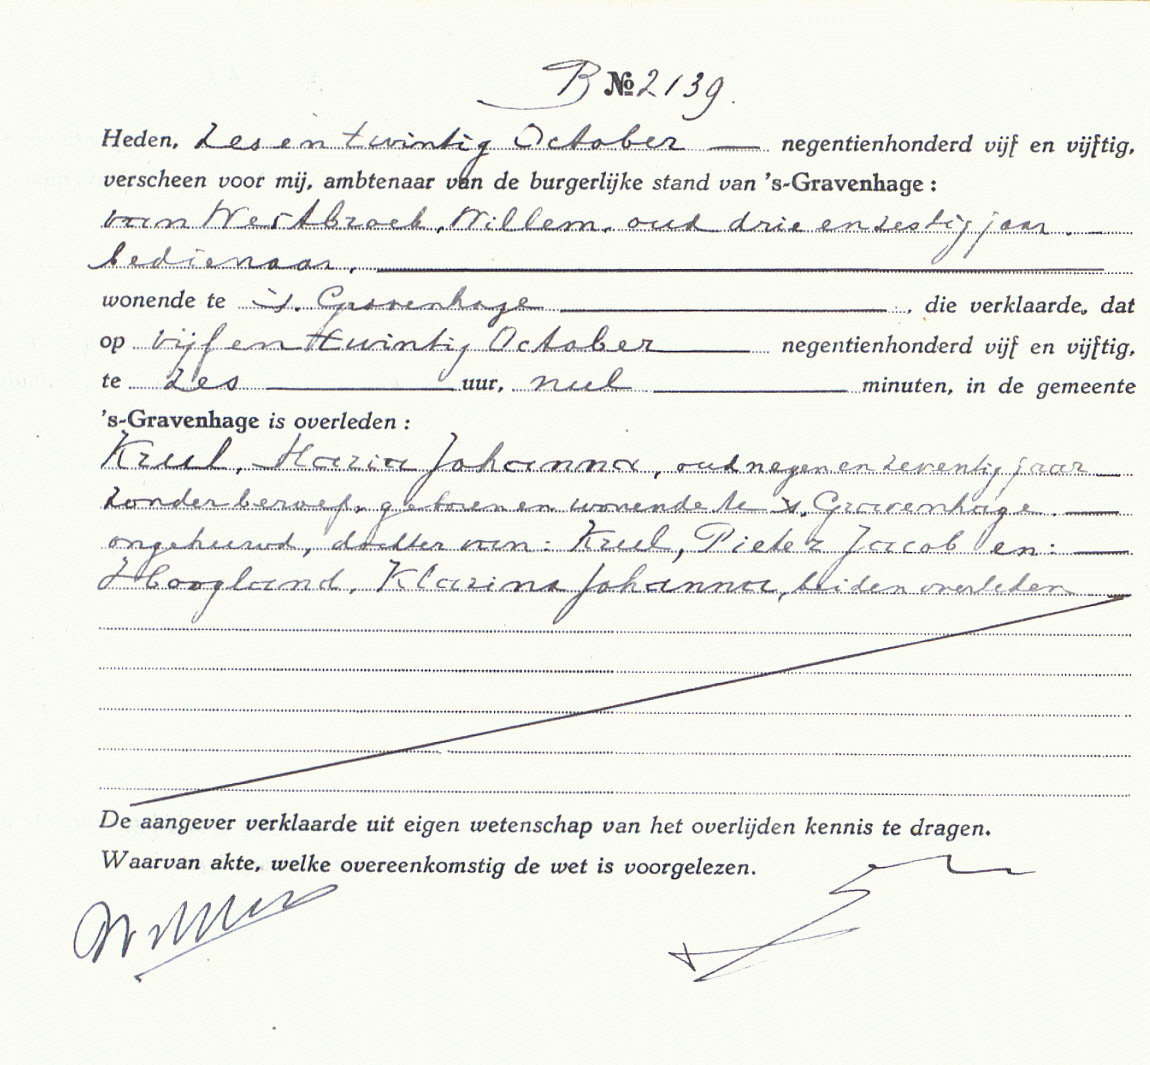 B № 2139.
Heden, zes en twintig October — negentienhonderd vijf en vijftig,
verscheen voor mij, ambtenaar van de burgerlijke stand van 's-Gravenhage :
van Westbroek, Willem, oud drie en zestig jaar, —
bedienaar, —
wonende te 's. Gravenhage —, die verklaarde, dat
op vijf en twintig October — negentienhonderd vijf en vijftig,
te zes — uur, nul — minuten, in de gemeente
's-Gravenhage is overleden :
Krul, Maria Johanna, oud negen en zeventig jaar —
zonder beroep, geboren en wonende te 's. Gravenhage. —
ongehuwd, dochter van: Krul, Pieter Jacob en: —
Hoogland, Klazina Johanna, beiden overleden —
De aangever verklaarde uit eigen wetenschap van het overlijden kennis te dragen.
Waarvan akte, welke overeenkomstig de wet is voorgelezen.